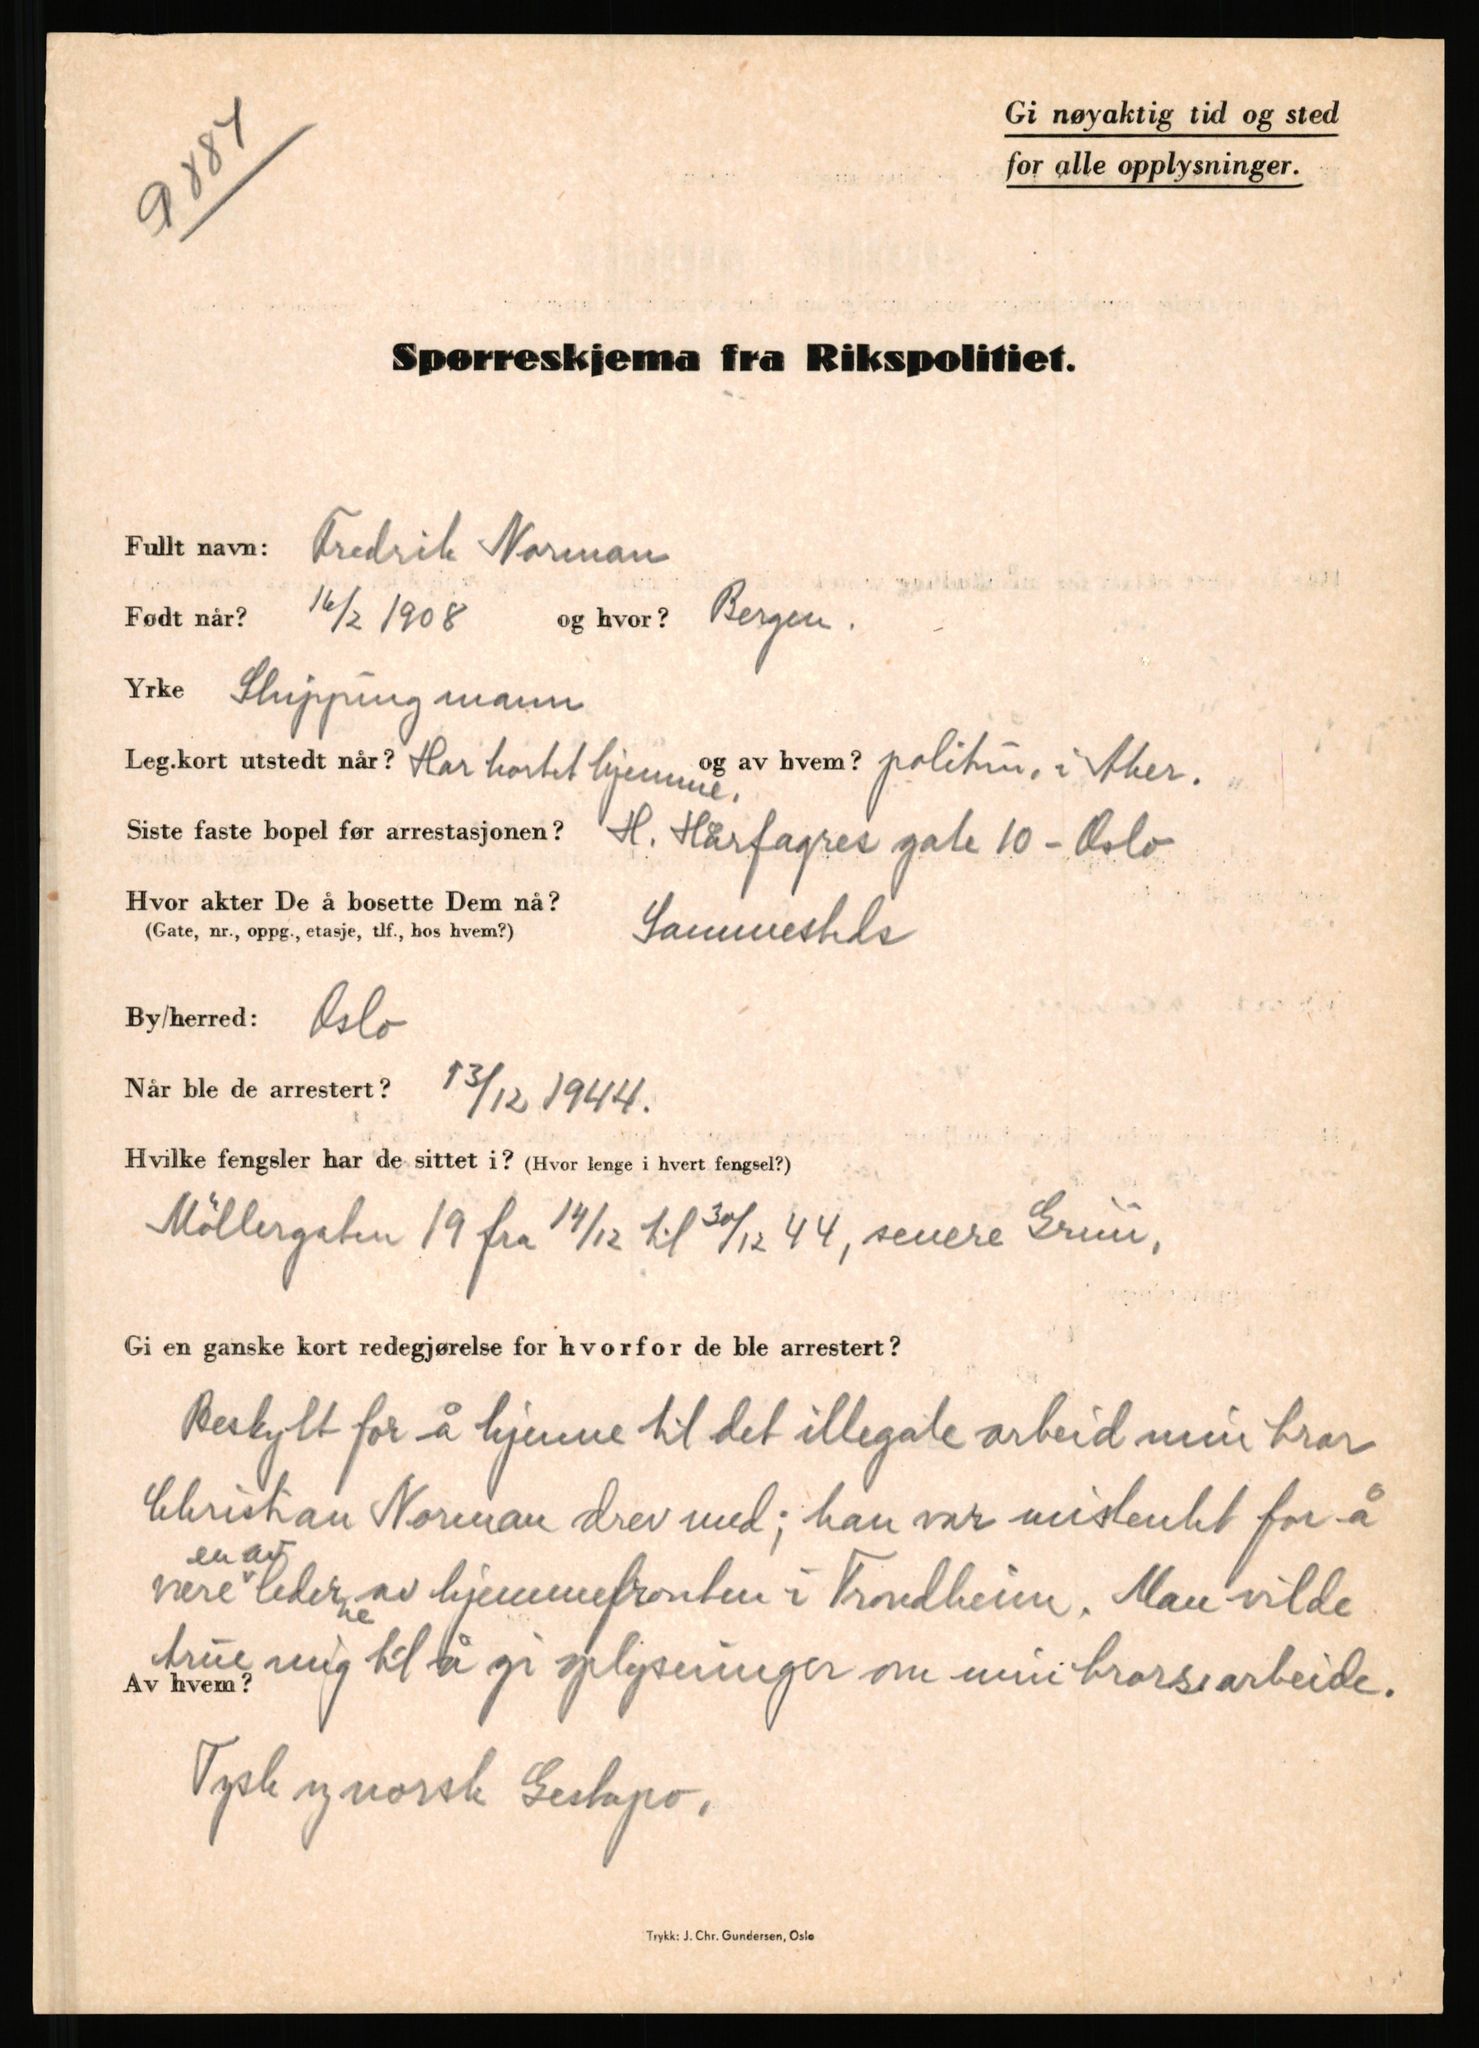 9884
Gi nøyaktig tid og sted
for alle opplysninger.
Spørreskjema fra Rikspolitiet.
Fullt navn: Fredrik Norman
Født når? 16/2 1908 og hvor? Bergen.
Yrke Shippingmann
Leg.kort utstedt når? Har kortet hjemme. og av hvem? politiu. i Aker.
Siste faste bopel før arrestasjonen? H. Hårfagres gate 10 - Oslo
Hvor akter De å bosette Dem nå? Sammesteds
(Gate, nr., oppg., etasje, tlf., hos hvem?)
By/herred: Oslo
Når ble de arrestert? 13/12 1944.
Hvilke fengsler har de sittet i? (Hvor lenge i hvert fengsel?)
Möllergaten 19 fra 14/12 til 30/12 44, senere Grini.
Gi en ganske kort redegjørelse for hvorfor de ble arrestert?
Beskylt for å kjenne til det illegale arbeid min bror
Christian Norman drev med; han var mistenkt for å
være en av lederne av hjemmefronten i Trondheim. Man vilde
true mig til å gi oplysninger om min brors arbeide.
Av hvem?
Tysk og norsk Gestapo.
Trykk: J. Chr. Gundersen, Oslo